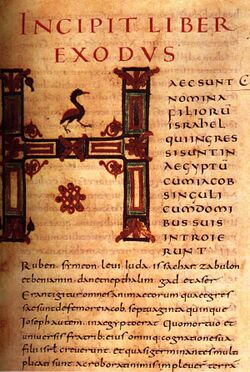 INCIPIT LIBER
EXODVS
HAEC SUNT
NOMINA
FILIORŪ
ISRAHEL
QUI INGRES
SI SUNT IN
AEGYPTŪ
CUM IACOB
SINGULI
CUM DOMI
BUS SUIS
INTROIE
RUNT
Ruben symeon leui iuda issachar zabulon
et beniamin dan et nepthalim gad et aser
Erant igitur omnes animae eorum quae egres
sae sunt de femore iacob septuaginta quinque
Ioseph autem in aegypto erat Quo mortuo et
uniuersis fratribus eius omnique cognatione sua
filii israhel creuerunt et quasi germinantes multi
plicati sunt ac roborati nimis impleuerunt